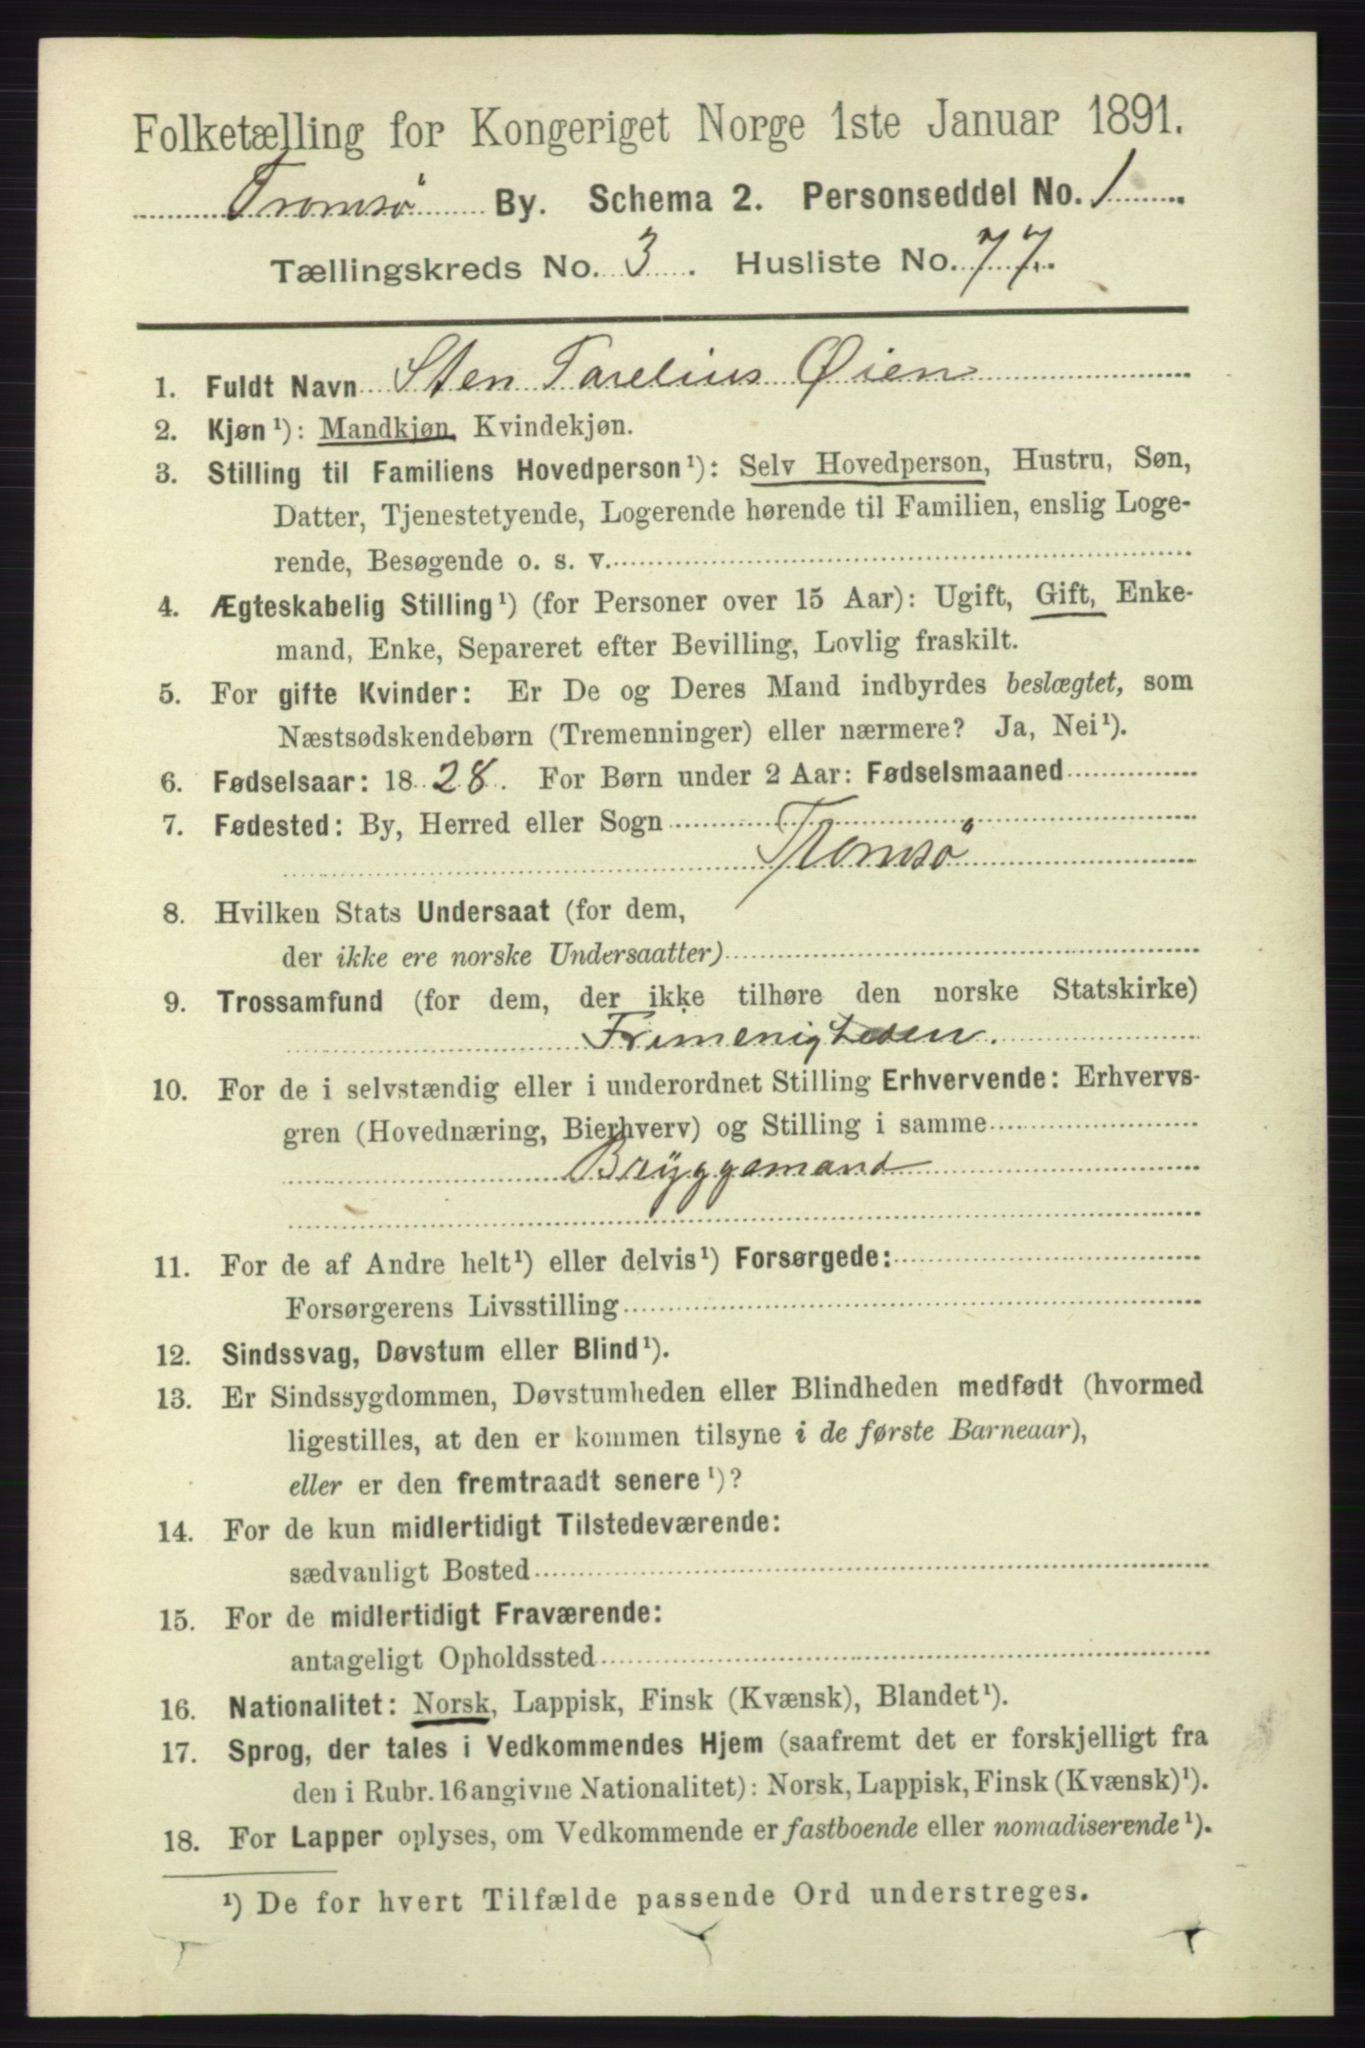 Folketælling for Kongeriget Norge 1ste Januar 1891.
Tromsø By. Schema 2. Personseddel No. 1
Tællingskreds No. 3. Husliste No. 77.
1. Fuldt Navn Sten Tarelius Øien
2. Kjøn¹): Mandkjøn, Kvindekjøn.
3. Stilling til Familiens Hovedperson¹): Selv Hovedperson, Hustru, Søn,
Datter, Tjenestetyende, Logerende hørende til Familien, enslig Loge-
rende, Besøgende o. s. v.
4. Ægteskabelig Stilling¹) (for Personer over 15 Aar): Ugift, Gift, Enke-
mand, Enke, Separeret efter Bevilling, Lovlig fraskilt.
5. For gifte Kvinder: Er De og Deres Mand indbyrdes beslægtet, som
Næstsødskendebørn (Tremenninger) eller nærmere? Ja, Nei¹).
6. Fødselsaar: 1828. For Børn under 2 Aar: Fødselsmaaned
7. Fødested: By, Herred eller Sogn
Tromsø
8. Hvilken Stats Undersaat (for dem,
der ikke ere norske Undersaatter)
9. Trossamfund (for dem, der ikke tilhøre den norske Statskirke)
Frimenigheden.
10. For de i selvstændig eller i underordnet Stilling Erhvervende: Erhvervs-
gren (Hovednæring, Bierhverv) og Stilling i samme
Bryggemand
11. For de af Andre helt¹) eller delvis¹) Forsørgede:
Forsørgerens Livsstilling
12. Sindssvag, Døvstum eller Blind¹).
13. Er Sindssygdommen, Døvstumheden eller Blindheden medfødt (hvormed
ligestilles, at den er kommen tilsyne i de første Barneaar),
eller er den fremtraadt senere¹)?
14. For de kun midlertidigt Tilstedeværende:
sædvanligt Bosted
15. For de midlertidigt Fraværende:
antageligt Opholdssted
16. Nationalitet: Norsk, Lappisk, Finsk (Kvænsk), Blandet¹).
17. Sprog, der tales i Vedkommendes Hjem (saafremt det er forskjelligt fra
den i Rubr. 16 angivne Nationalitet): Norsk, Lappisk, Finsk (Kvænsk)¹).
18. For Lapper oplyses, om Vedkommende er fastboende eller nomadiserende¹).
¹) De for hvert Tilfælde passende Ord understreges.